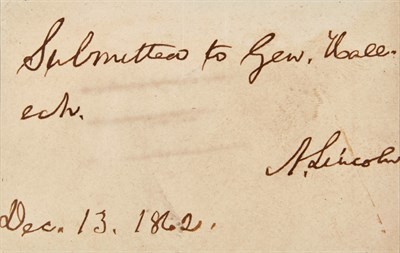 Submitted to Gen. Hall-
eck.
A. Lincoln
Dec. 13. 1862.